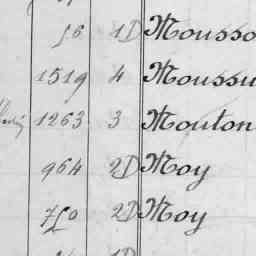 56 1D Mousso
1519 4 Moussu
1263 3 Mouton
964 2D Moy
750 2D Moy
1D